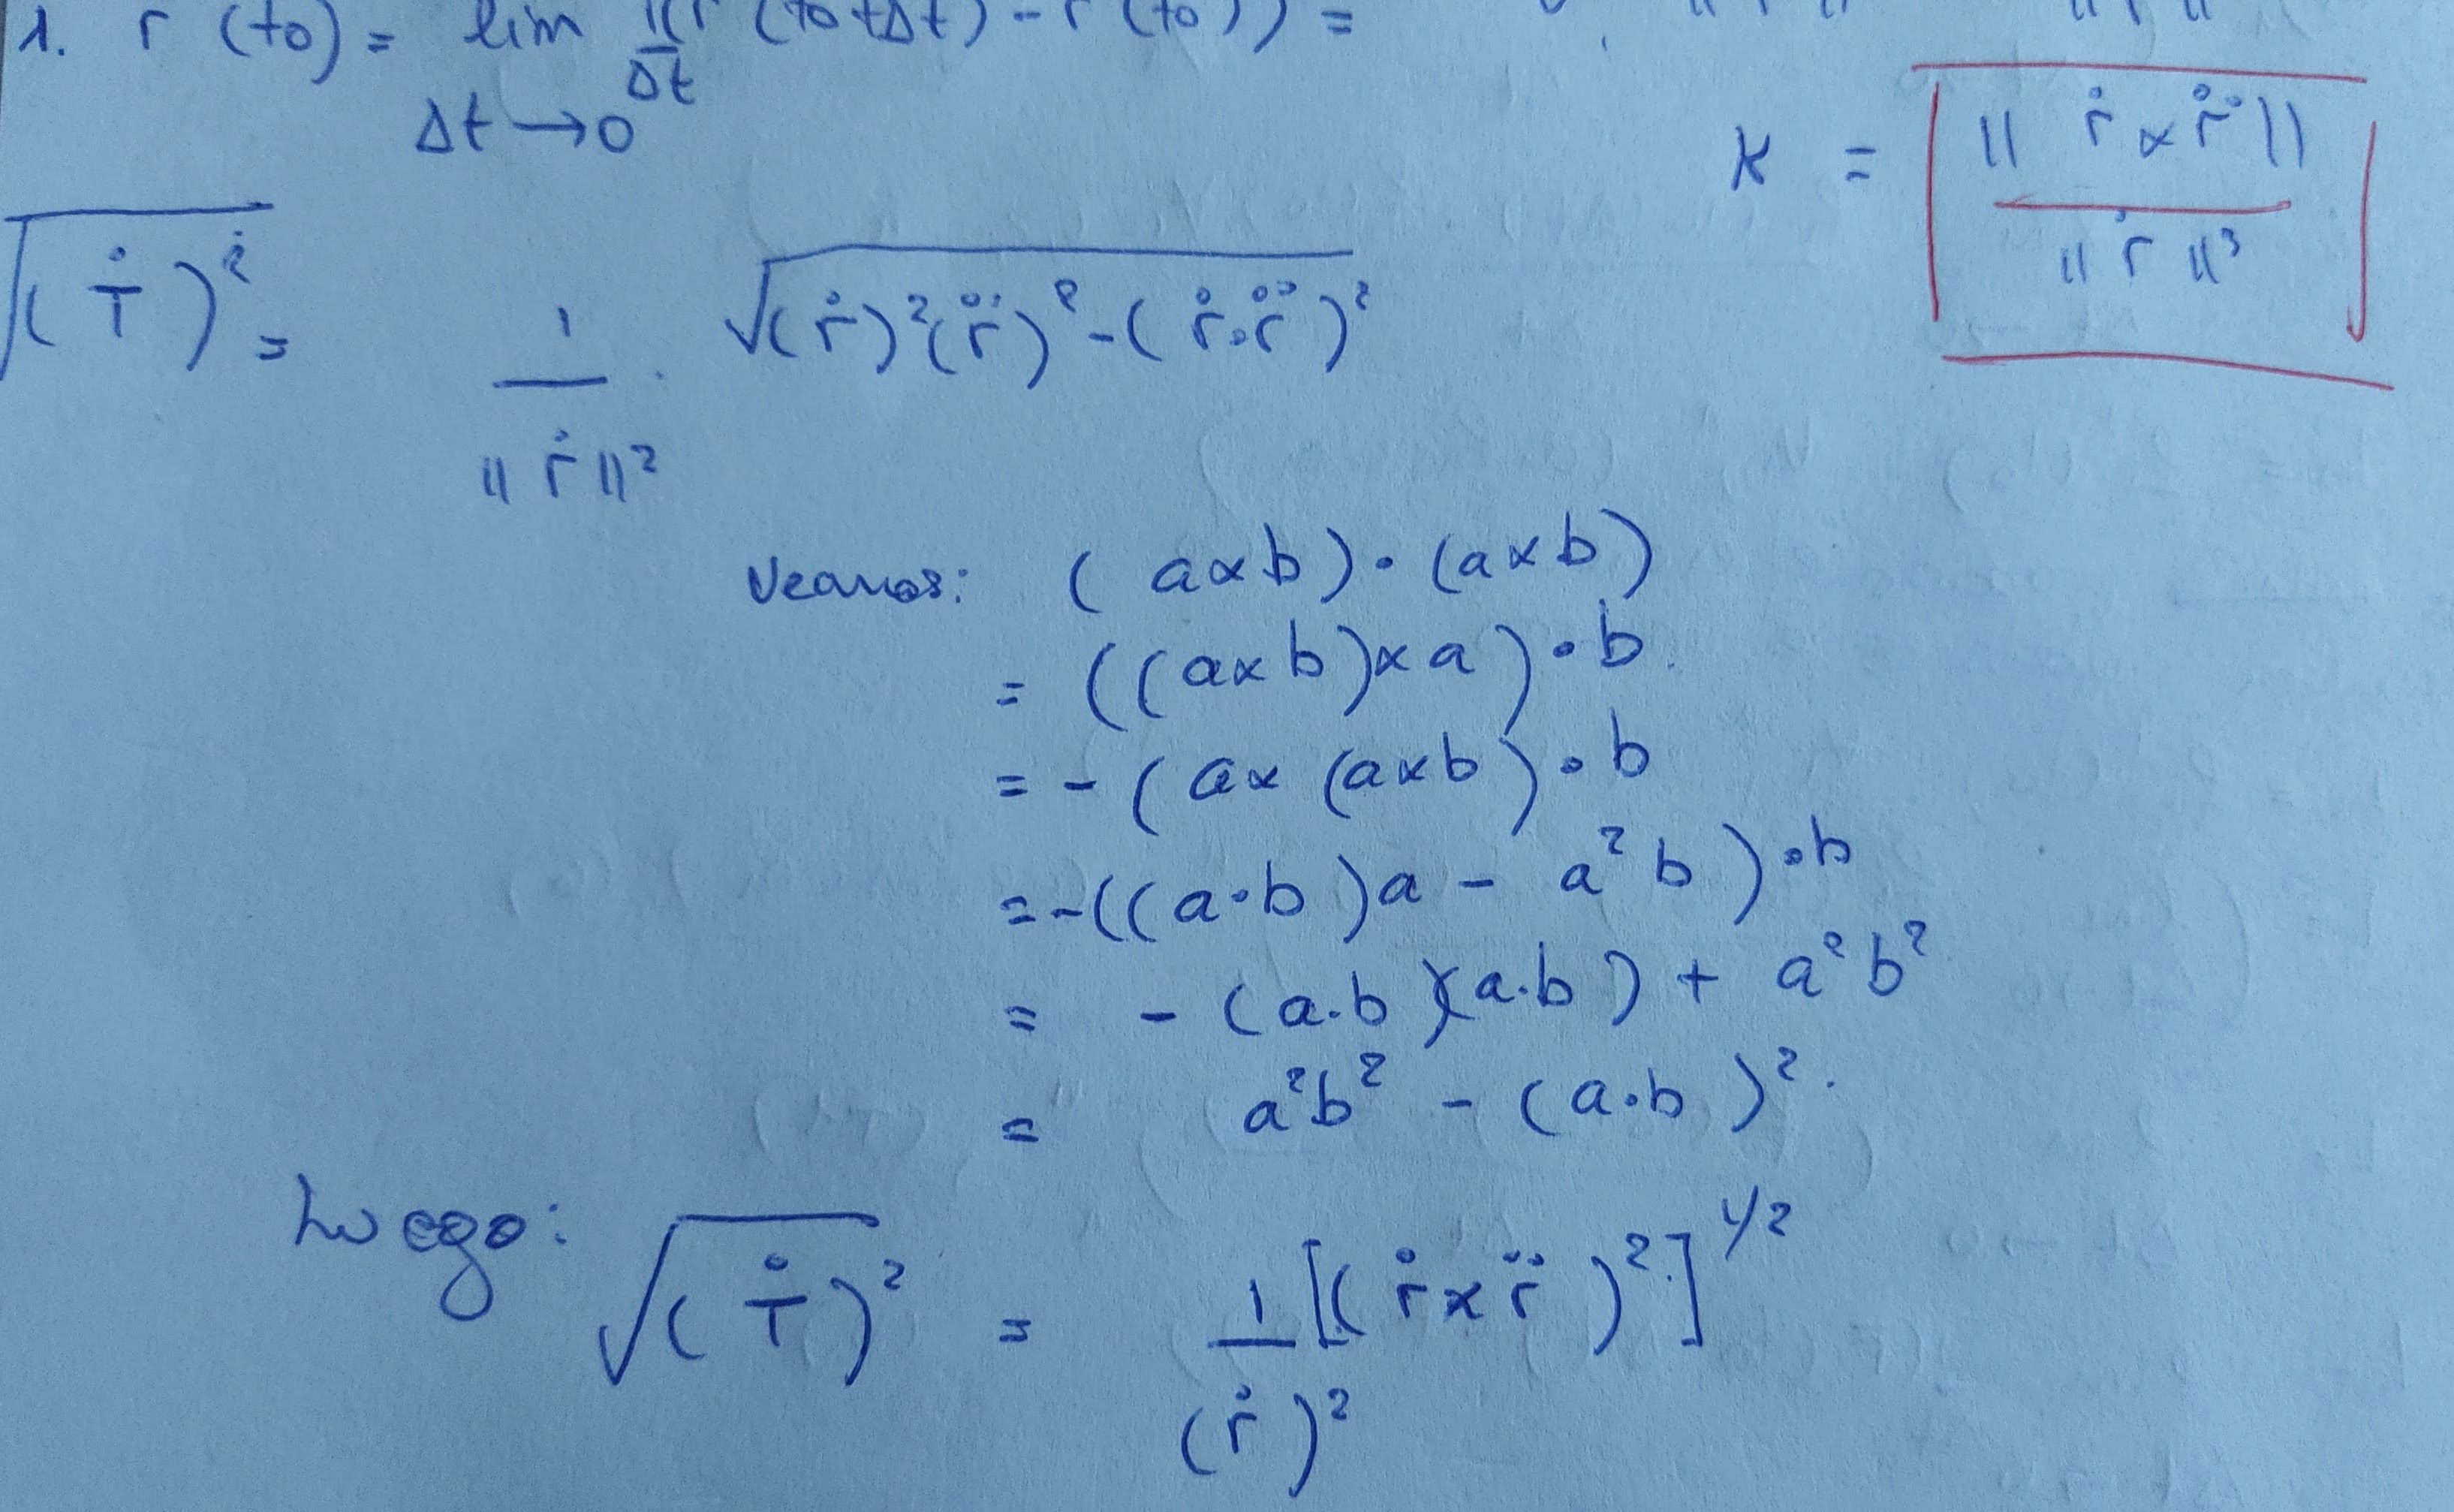 1. r (to) = lim 1/Δt (r (to+Δt) - r (to)) =
Δt → 0
K = || ṙ × r̈ || / || ṙ ||³
√(Ṫ)² = 1/|| ṙ ||² · √(ṙ)²(r̈)² - (ṙ·r̈)²
Veamos: (a×b)·(a×b)
= ((a×b)×a)·b.
= -(a×(a×b)·b
= -((a·b)a - a²b)·b
= -(a.b)(a.b) + a²b²
= a²b² - (a.b)².
Luego: √(Ṫ)² = 1/(ṙ)² [(ṙ×r̈)²]^1/2